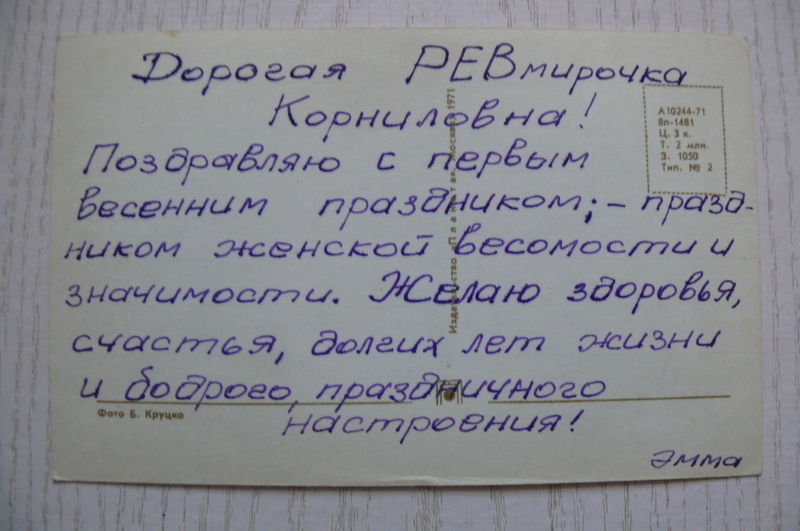 Дорогая РЕВмирочка
Корниловна!
Поздравляю с первым
весенним праздником; – празд-
ником женской весомости и
значимости. Желаю здоровья,
счастья, долгих лет жизни
и бодрого, праздничного
настроения!
Эмма
А10244-71
8п-1481
Ц. 3 к.
Т. 2 млн.
З. 1050
Тип. № 2
Издательство «Планета». Москва. 1971
Фото Б. Круцко